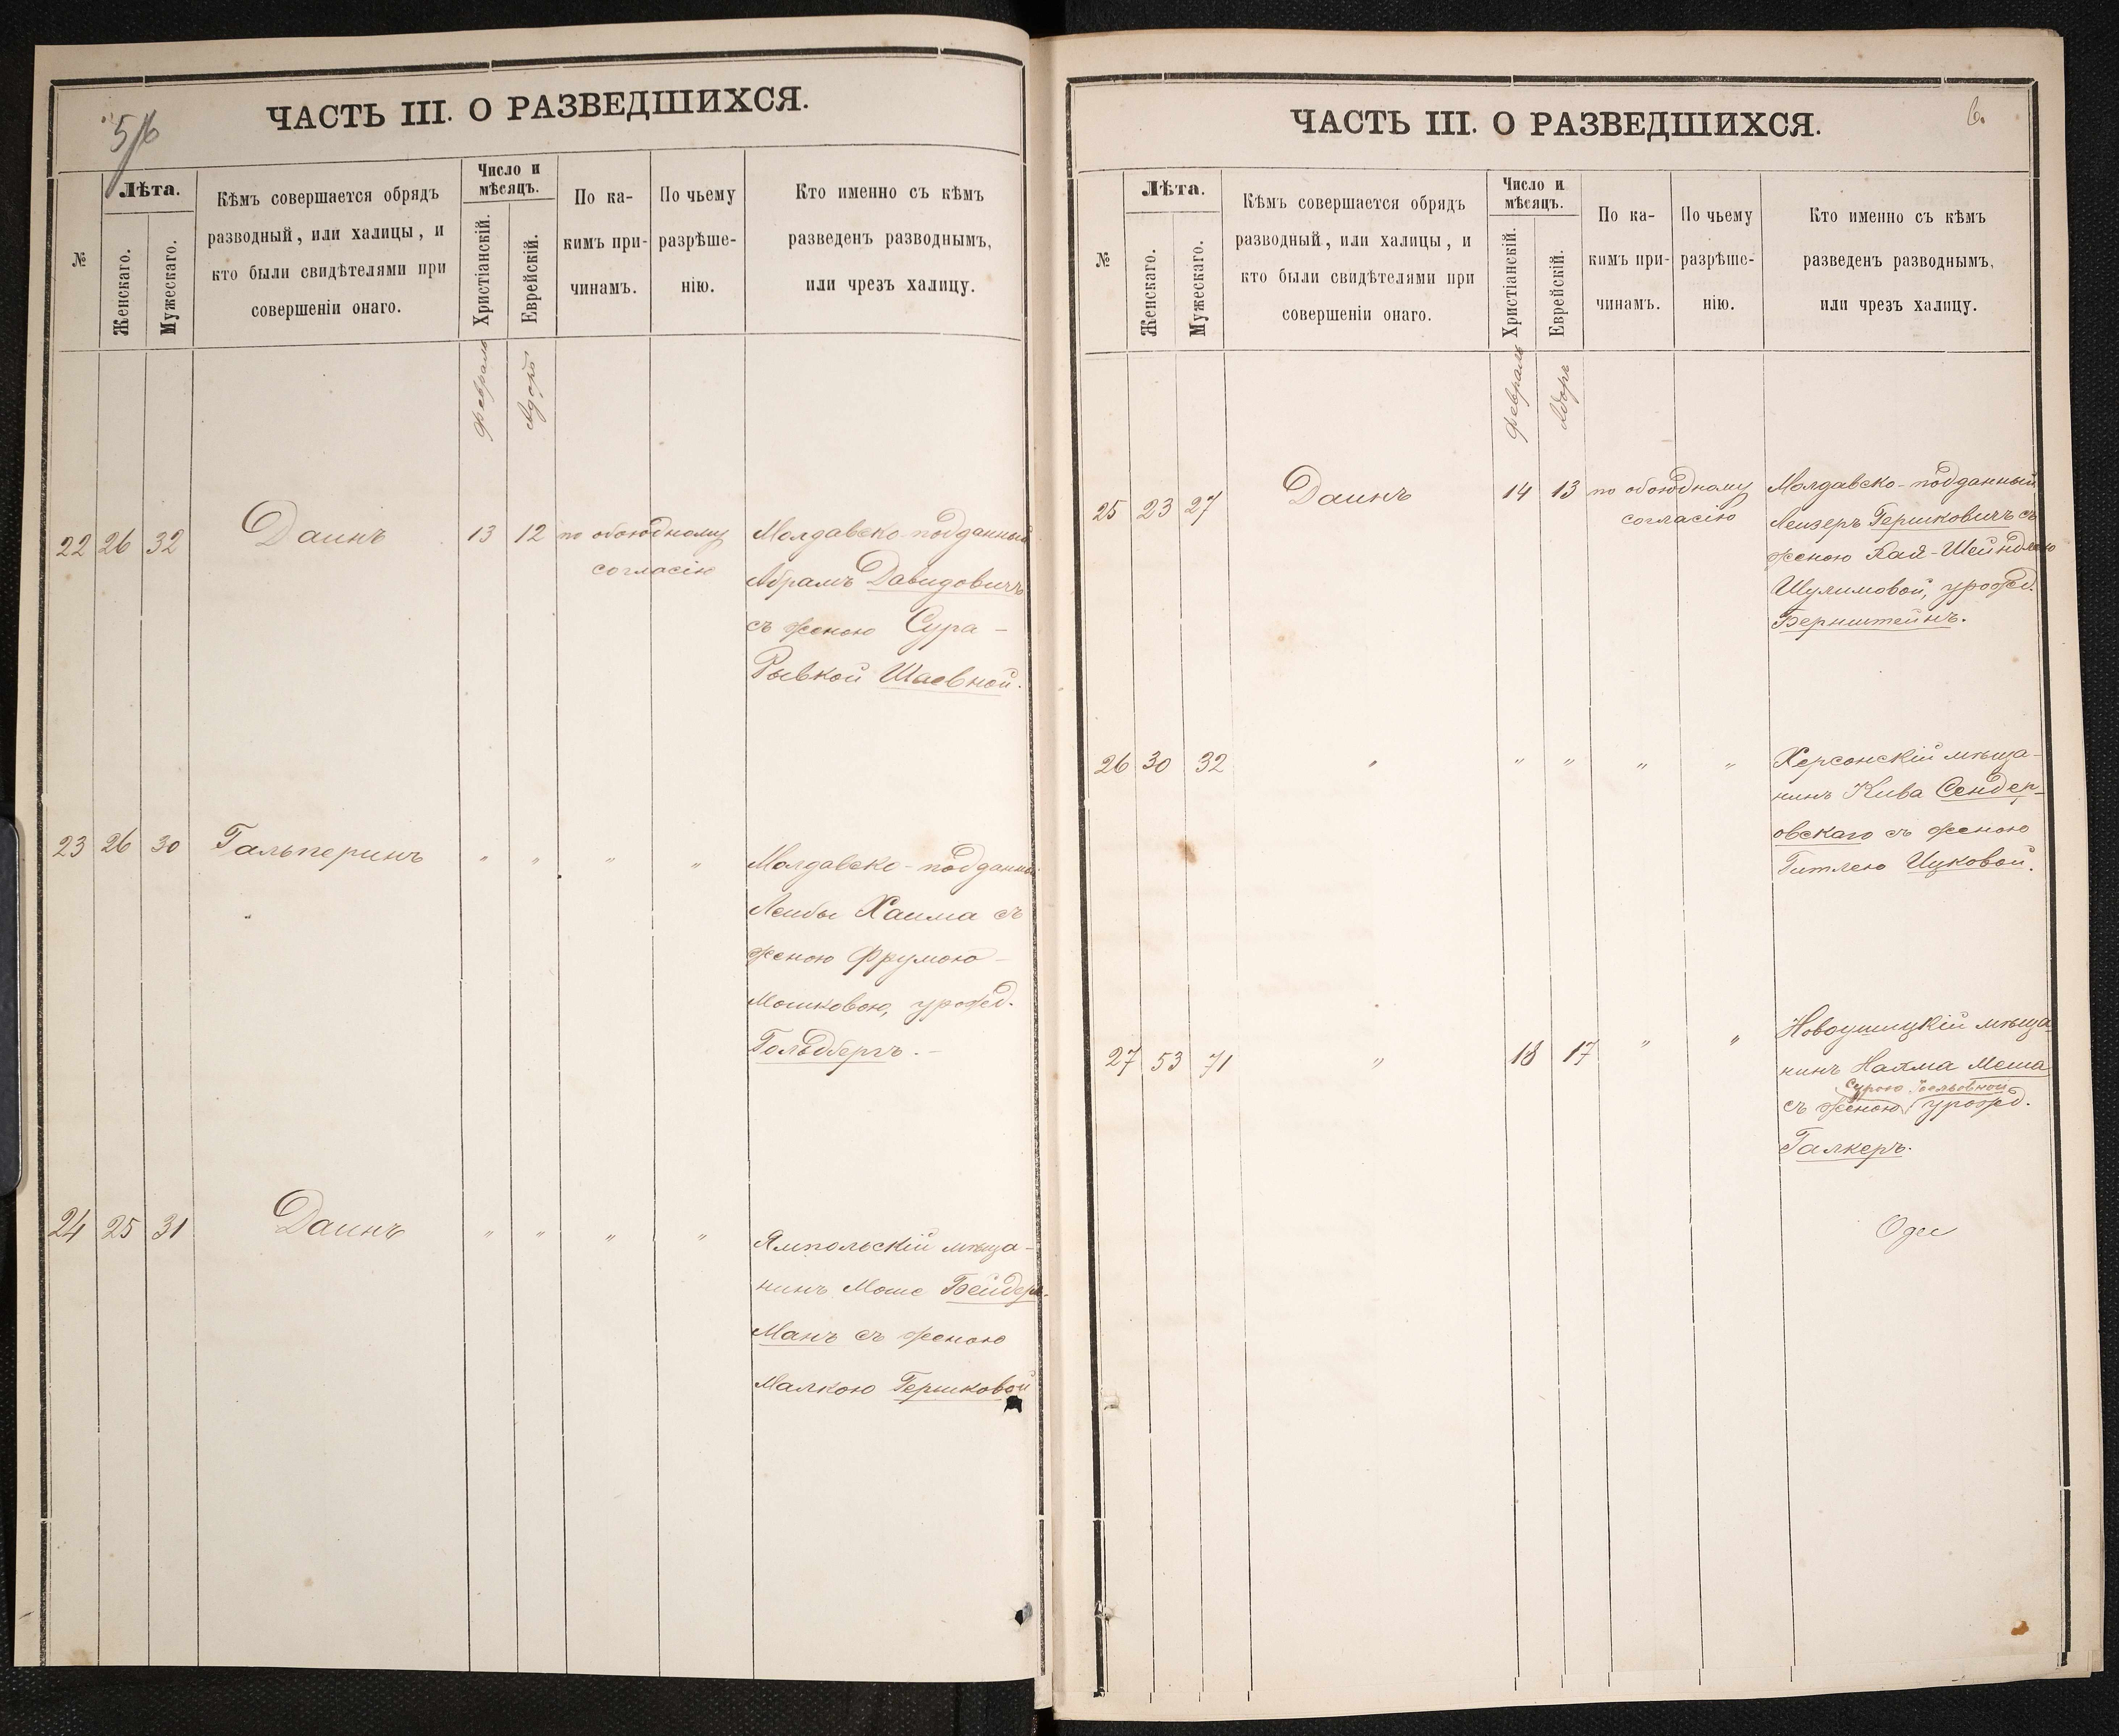 5/6
ЧАСТЬ III. О РАЗВЕДШИХСЯ.
№
Лѣта.
Женскаго.
Мужескаго.
Кѣмъ совершается обрядъ
разводный, или халицы, и
кто были свидѣтелями при
совершеніи онаго.
Число и
мѣсяцъ.
Христіанскій.
Еврейскій.
По ка-
кимъ при-
чинамъ.
По чьему
разрѣше-
нію.
Кто именно съ кѣмъ
разведенъ разводнымъ,
или чрезъ халицу.
февраль
Адоръ
22 26 32 Даинъ 13 12 по обоюдному
согласію
Молдавско-подданный
Абрамъ Давидовичъ
съ женою Сура-
Рывкой Шаевной.
23 26 30 Гальперинъ " " " "
Молдавско-подданный
Лейбы Хаима съ
женою Фрумою-
Мошковою, урожд.
Гольдбергъ.-
24 25 31 Даинъ " " " "
Ямпольскій мѣща-
нинъ Моше Бейдер-
Манъ съ женою
Малкою Гершковой
ЧАСТЬ III. О РАЗВЕДШИХСЯ.
6.
№
Лѣта.
Женскаго.
Мужескаго.
Кѣмъ совершается обрядъ
разводный, или халицы, и
кто были свидѣтелями при
совершеніи онаго.
Число и
мѣсяцъ.
Христіанскій.
Еврейскій.
По ка-
кимъ при-
чинамъ.
По чьему
разрѣше-
нію.
Кто именно съ кѣмъ
разведенъ разводнымъ,
или чрезъ халицу.
февраль
Адоръ
25 23 27 Даинъ 14 13 по обоюдному
согласію
Молдавско-подданный
Лейзеръ Гершковичъ съ
женою Хая-Шейндлею
Шулимовой, урожд.
Бернштейнъ.
26 30 32 " " " " "
Херсонскій мѣща-
нинъ Кива Сендер-
овскаго съ женою
Гитлею Ицковой.
27 53 71 " 18 17 " "
Новоушицкій мѣща-
нинъ Меша
Сурою
съ женою урожд.
Галкеръ.
Одес